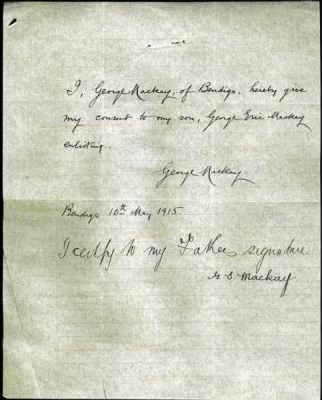 I, George Mackay, of Bendigo, hereby give
my consent to my son, George Eric Mackay
enlisting.
George Mackay.
Bendigo 10th May 1915.
I certify to my Fathers signature
G. E. Mackay